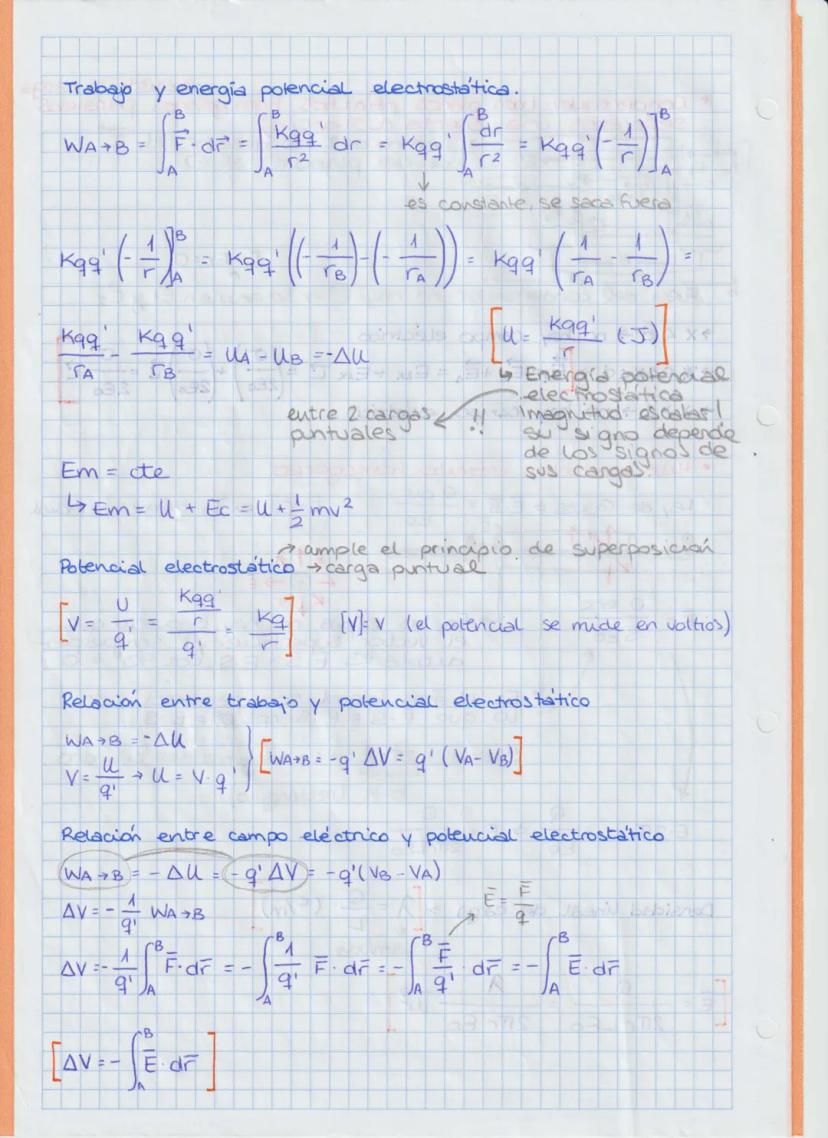 Trabajo y energía potencial electrostática.
WA→B = ∫_A^B F⃗ · dr⃗ = ∫_A^B Kqq'/r² dr = Kqq' ∫_A^B dr/r² = Kqq' (-1/r)]_A^B
↓
es constante, se saca fuera
Kqq' (-1/r)]_A^B = Kqq' ((-1/rB)-(-1/rA)) = Kqq' (1/rA - 1/rB) =
Kqq'/rA - Kqq'/rB = UA - UB = -ΔU
[U = Kqq'/r (J)]
↳ Energía potencial
electrostática
entre 2 cargas
puntuales
!!
Magnitud escalar!
su signo depende
de los signos de
sus cargas.
Em = cte
↳ Em = U + Ec = U + 1/2 mv²
Potencial electrostático
→ cumple el principio de superposición
→ carga puntual
[V = U/q' = (Kqq'/r)/q' = Kq/r]
[V]=V (el potencial se mide en voltios)
Relación entre trabajo y potencial electrostático
WA→B = -ΔU
V = U/q' → U = V·q'
} [WA→B = -q' ΔV = q' (VA - VB)]
Relación entre campo eléctrico y potencial electrostático
WA→B = -ΔU = -q' ΔV = -q'(VB - VA)
ΔV = -1/q' WA→B
E̅ = F̅/q
ΔV = -1/q' ∫_A^B F̅·dr̅ = -∫_A^B 1/q' F̅·dr̅ = -∫_A^B F̅/q' · dr̅ = -∫_A^B E̅·dr̅
[ΔV = -∫_A^B E̅·dr̅]